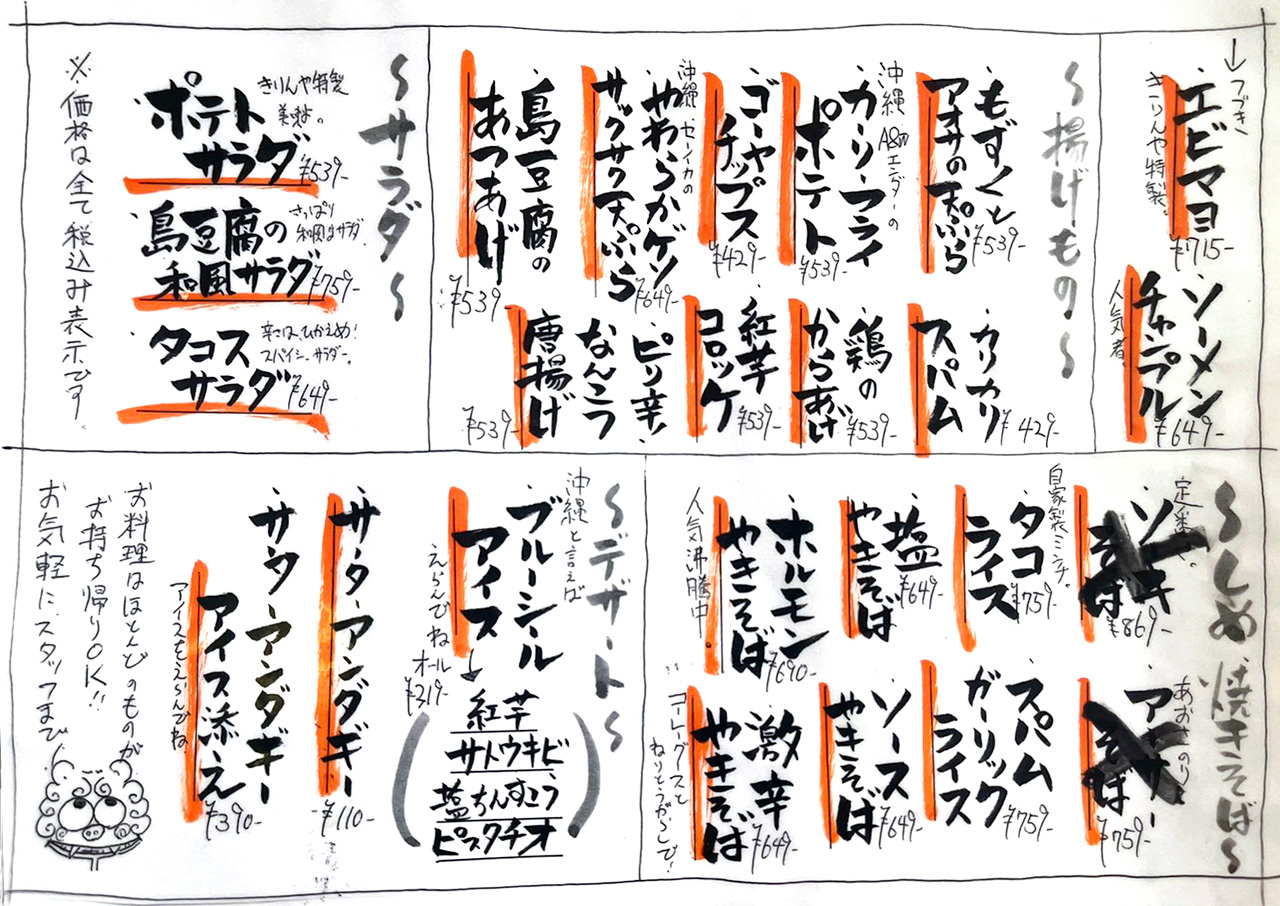 ↓つづき
エビマヨ
きりんや特製。
¥715-
ソーメン
チャンプル
人気者。
¥649-
〜揚げもの〜
もずくと
アオサの天ぷら
¥539-
沖縄 A&Wエンダーの
カーリーフライ
ポテト
¥539-
ゴーヤ
チップス
¥429-
沖縄 セーイカの
やわらかゲソ
サックサク天ぷら
¥649-
島豆腐の
あつあげ
¥539
カリカリ
スパム
¥429-
鶏の
からあげ
¥539-
紅芋
コロッケ
¥539-
ピリ辛!
なんこつ
唐揚げ
¥539-
〜サラダ〜
きりんや特製
ポテト
サラダ
¥539-
島豆腐の
さっぱり
和風サラダ
¥759-
タコス
サラダ
辛さは、ひかえめ!
スパイシーサラダー。
¥649-
※価格は全て税込み表示です。
〜しめ 焼きそば〜
定番。
ソーキ
そば
¥869-
あおさのり
アーサー
そば
¥759-
自家製ミンチ。
タコ
ライス
¥759-
スパム
ガーリック
ライス
¥759-
塩
やきそば
¥649-
ソース
やきそば
¥649-
ホルモン
やきそば
人気沸騰中。
¥690-
激辛
やきそば
コーレーグスと
ねりとうがらしで!
¥649-
〜デザート〜
沖縄と言えば
ブルーシール
アイス
えらんでね
↓
オール
¥319-
(紅芋
サトウキビ
塩ちんすこう
ピスタチオ)
サーターアンダギー
¥110-
サーターアンダギー
アイス添え
アイスをえらんでね
¥390-
お料理はほとんどのものが
お持ち帰りOK!!
お気軽に、スタッフまで